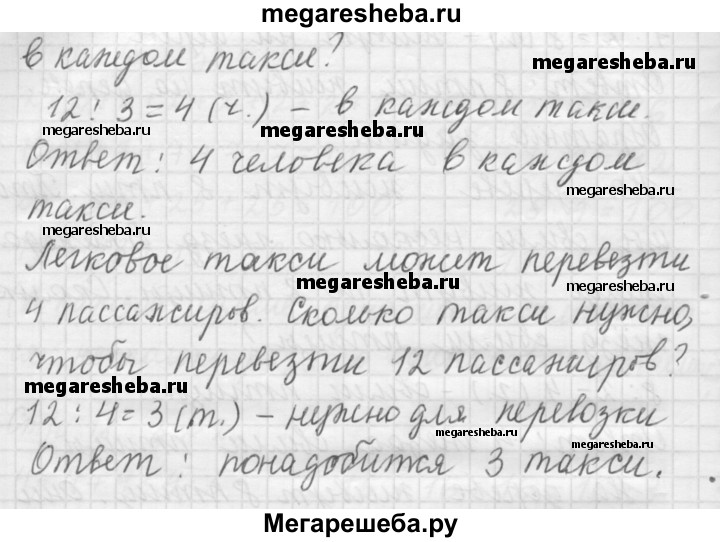 megaresheba.ru
в каждом такси?
megaresheba.ru
12 : 3 = 4 (ч.) – в каждом такси.
megaresheba.ru
megaresheba.ru
Ответ : 4 человека в каждом
megaresheba.ru
такси.
megaresheba.ru
Легковое такси может перевезти
megaresheba.ru
megaresheba.ru
4 пассажиров. Сколько такси нужно,
чтобы перевезти 12 пассажиров?
megaresheba.ru
12 : 4 = 3 (т.) – нужно для перевозки
megaresheba.ru
megaresheba.ru
Ответ : понадобится 3 такси.
Мегарешеба.ру